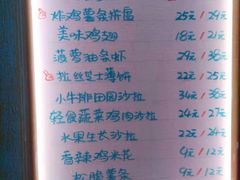 炸鸡薯条拼盘 25元/29元
美味鸡翅 18元/21元
菠萝油条虾 29元/38元
拉丝芝士薄饼 22元/25元
小牛排田园沙拉 34元/38元
轻食蔬菜鸡肉沙拉 24元/27元
水果生长沙拉 22元/24元
香辣鸡米花 9元/12元
松脆薯条 9元/12元